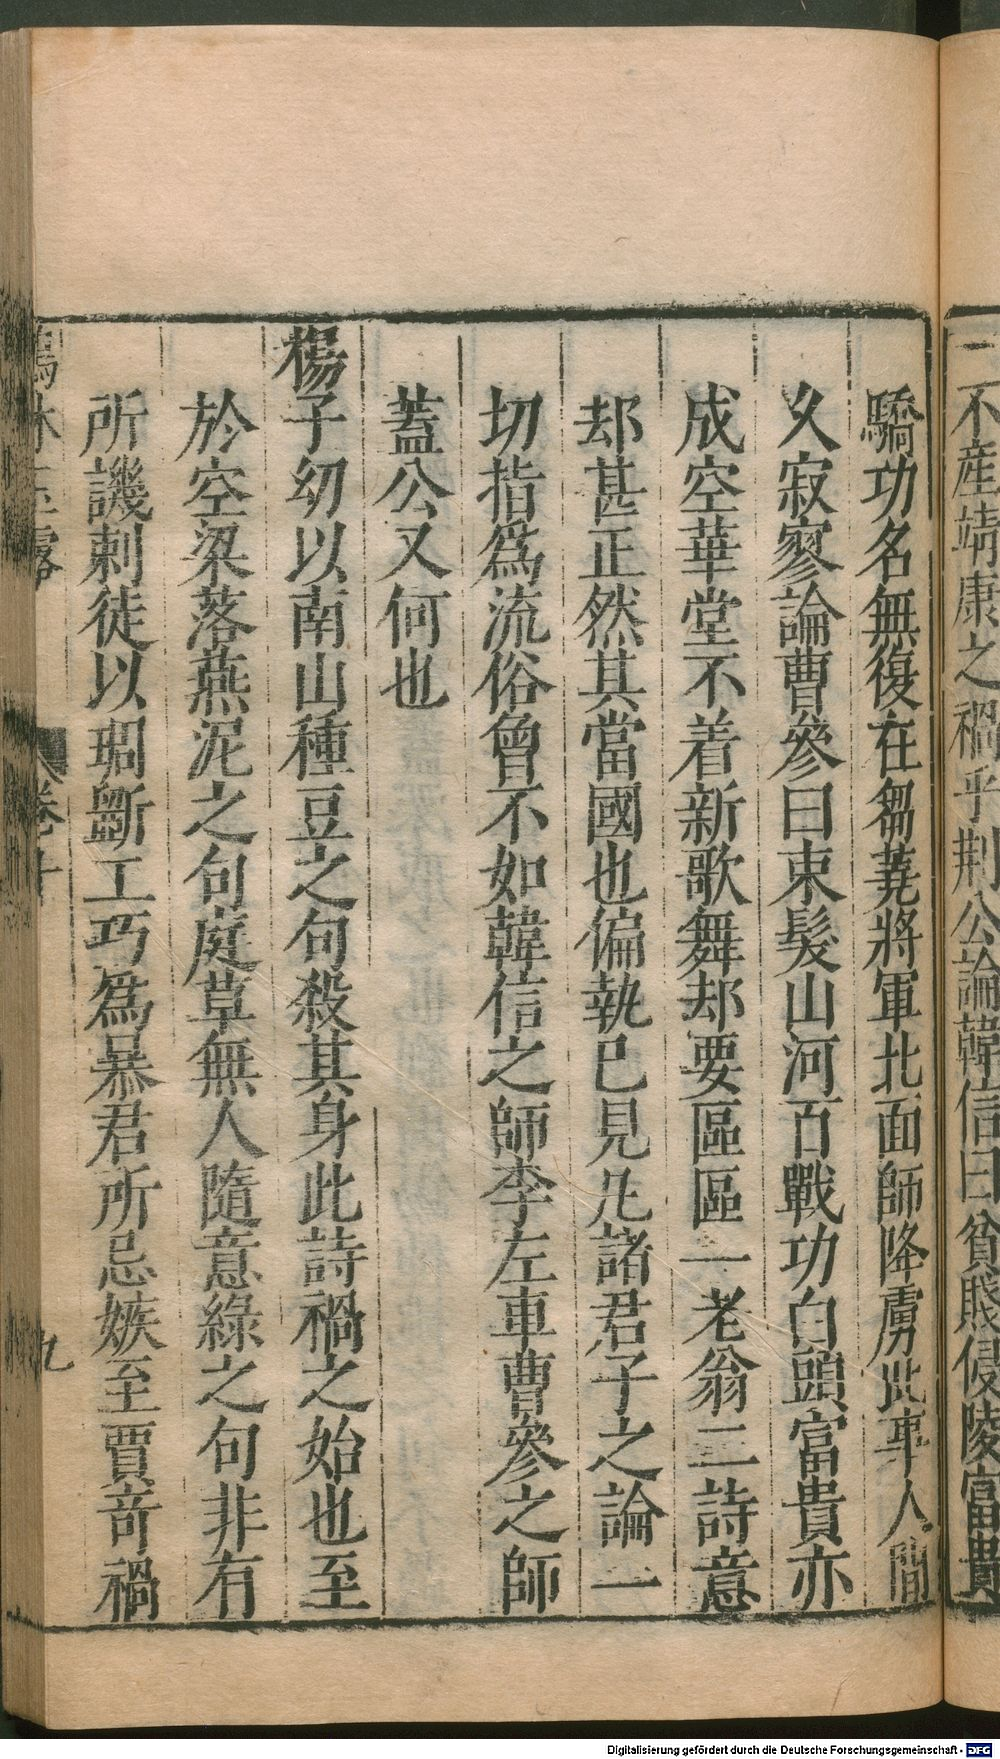 二不產靖康之禍乎荆公論韓信曰貧賤侵陵富貴
驕功名無復在芻蕘將軍北面師降虜此事人間
久寂寥論曹參曰束髮山河百戰功白頭富貴亦
成空華堂不着新歌舞却要區區一老翁二詩意
却甚正然其當國也偏執已見凡諸君子之論一
切指爲流俗曾不如韓信之師李左車曹參之師
蓋公又何也
楊子幼以南山種豆之句殺其身此詩禍之始也至
於空梁落燕泥之句庭草無人隨意綠之句非有
所譏刺徒以琱斲工巧爲暴君所忌嫉至賈竒禍
鶴林玉露 卷十 九
Digitalisierung gefördert durch die Deutsche Forschungsgemeinschaft - DFG